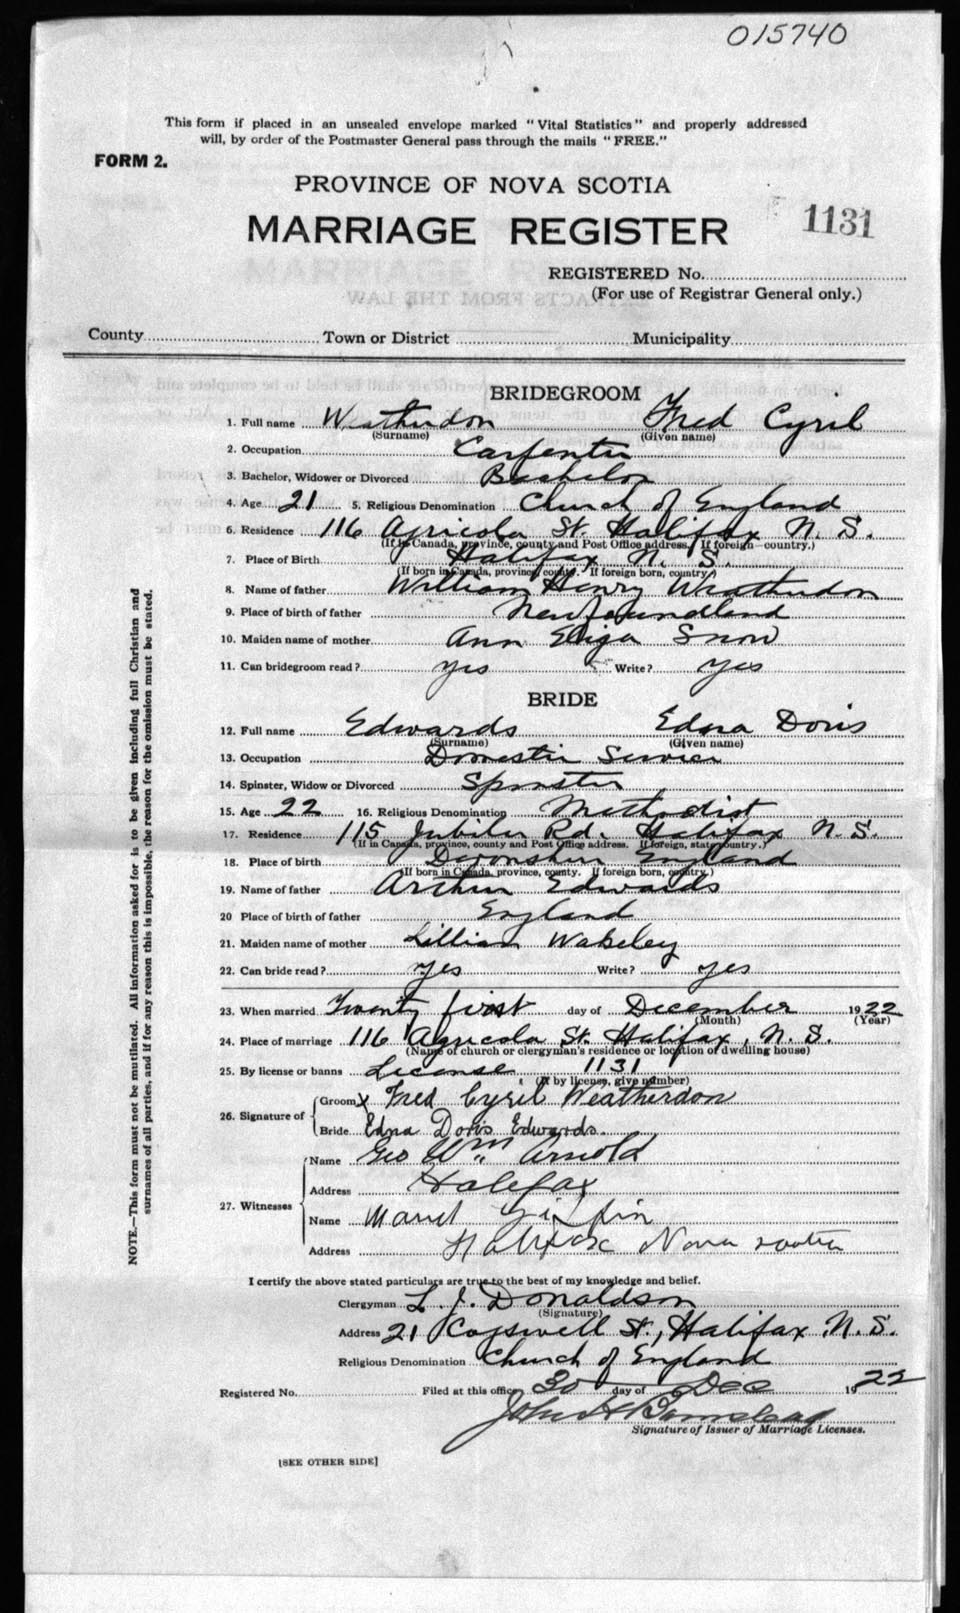 015740
This form if placed in an unsealed envelope marked "Vital Statistics" and properly addressed
will, by order of the Postmaster General pass through the mails "FREE."
FORM 2.
PROVINCE OF NOVA SCOTIA
MARRIAGE REGISTER
1131
REGISTERED No.
(For use of Registrar General only.)
County Town or District Municipality
BRIDEGROOM
1. Full name Weatherdon Fred Cyril
(Surname) (Given name)
2. Occupation Carpenter
3. Bachelor, Widower or Divorced Bachelor
4. Age 21 5. Religious Denomination Church of England
6. Residence 116 Agricola St. Halifax N. S.
(If in Canada, province, county and Post Office address. If foreign—country.)
7. Place of Birth Halifax N. S.
(If born in Canada, province, county. If foreign born, country.)
8. Name of father William Henry Weatherdon
9. Place of birth of father Newfoundland
10. Maiden name of mother Ann Eliza Snow
11. Can bridegroom read? yes Write? yes
BRIDE
12. Full name Edwards Edna Doris
(Surname) (Given name)
13. Occupation Domestic Service
14. Spinster, Widow or Divorced Spinster
15. Age 22 16. Religious Denomination Methodist
17. Residence 115 Jubilee Rd. Halifax N. S.
(If in Canada, province, county and Post Office address. If foreign, state country.)
18. Place of birth Devonshire England
(If born in Canada, province, county. If foreign born, country.)
19. Name of father Arthur Edwards
20 Place of birth of father England
21. Maiden name of mother Lillian Wakeley
22. Can bride read? yes Write? yes
23. When married Twenty first day of December 1922
(Month) (Year)
24. Place of marriage 116 Agricola St. Halifax, N. S.
(Name of church or clergyman's residence or location of dwelling house)
25. By license or banns License 1131
(If by license, give number)
26. Signature of Groom x Fred Cyril Weatherdon
Bride Edna Doris Edwards.
27. Witnesses Name Geo Wm Arnold
Address Halifax
Name
Address Halifax Nova Scotia
I certify the above stated particulars are true to the best of my knowledge and belief.
Clergyman L. J. Donaldson
(Signature)
Address 21 Cogswell St., Halifax N. S.
Religious Denomination Church of England
Registered No. Filed at this office 30 day of Dec 1922
John H
Signature of Issuer of Marriage Licenses.
[SEE OTHER SIDE]
NOTE.—This form must not be mutilated. All information asked for is to be given including full Christian and
surnames of all parties, and if for any reason this is impossible, the reason for the omission must be stated.